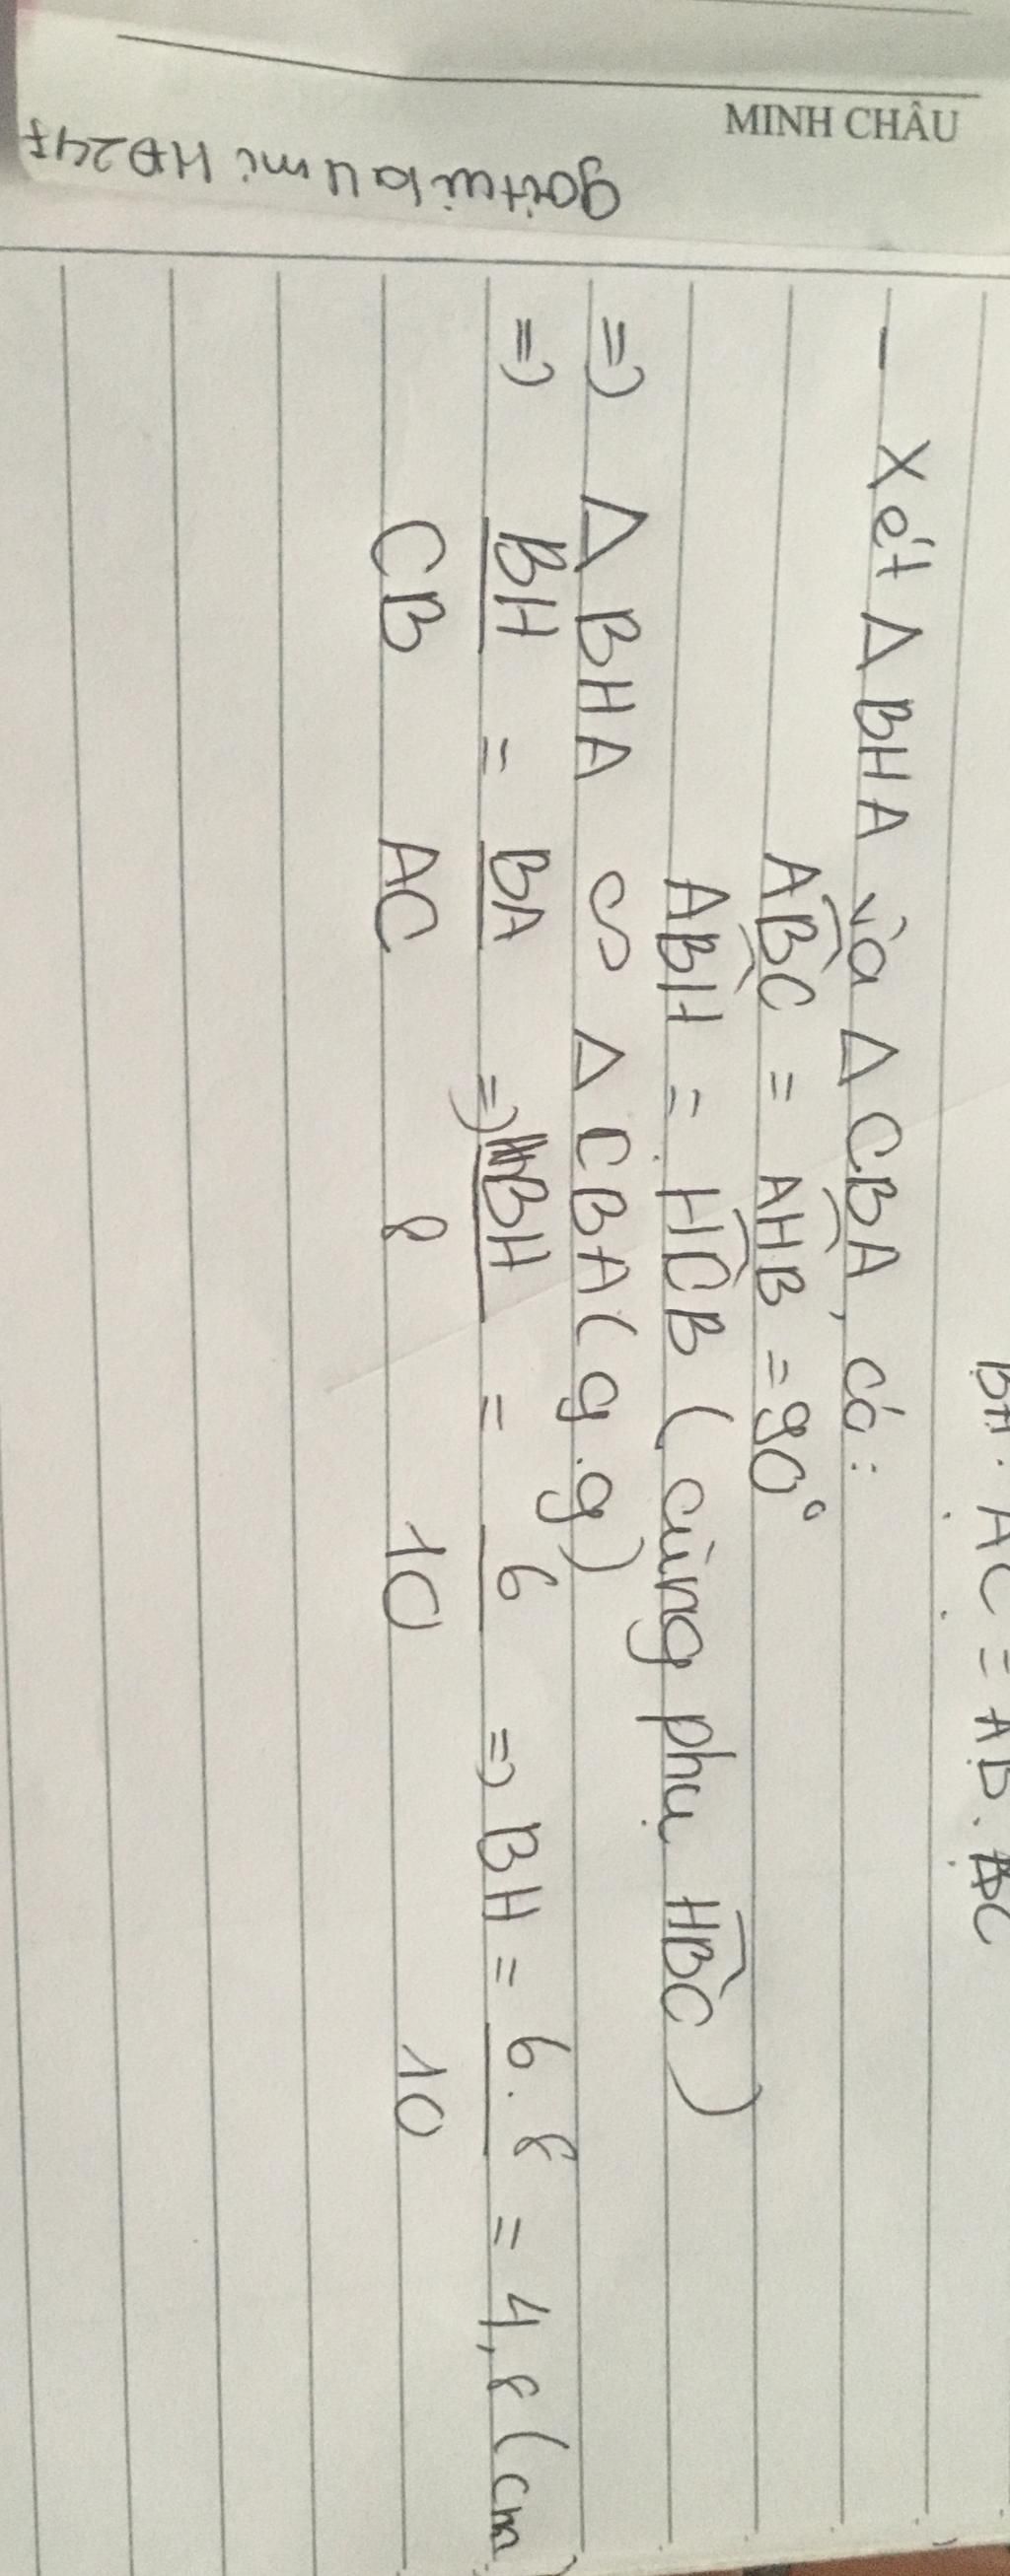 MINH CHÂU
BH . AC = AB. BC
- Xét Δ BHA và Δ CBA, có:
ABC = AHB = 90°
ABH = HCB ( cùng phụ HBC )
=> Δ BHA ∽ Δ CBA ( g.g)
=> BH/CB = BA/AC => BH/8 = 6/10 => BH = 6.8/10 = 4,8 (cm)